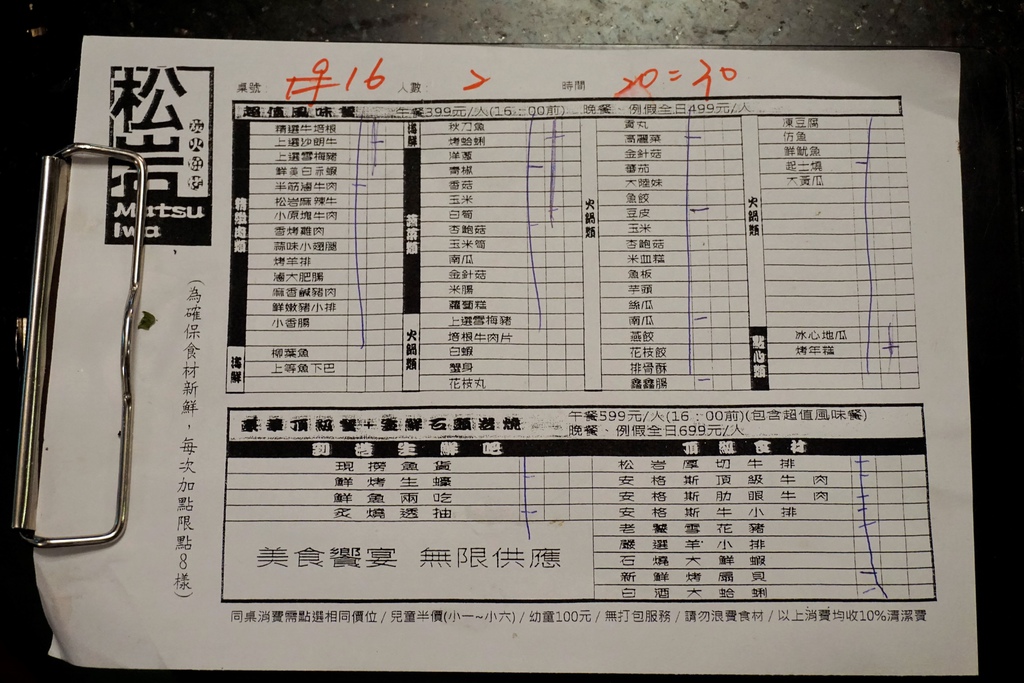 松岩
Matsu
Iwa
桌號 人數 2 時間 20=30
16
超值風味餐 午餐399元/人(16:00前) 晚餐、例假全日499元/人
精緻肉類
精選牛培根
上選沙朗牛
上選雪梅豬
鮮美白赤蝦
半筋滷牛肉
松岩麻辣牛
小原塊牛肉
香烤雞肉
蒜味小翅腿
烤羊排
滷大肥腸
麻香鹹豬肉
鮮嫩豬小排
小香腸
海鮮
柳葉魚
上等魚下巴
海鮮
秋刀魚
烤蛤蜊
蔬菜類
洋蔥
青椒
香菇
玉米
白筍
杏鮑菇
玉米筍
南瓜
金針菇
米腸
蘿蔔糕
火鍋類
上選雪梅豬
培根牛肉片
白蝦
蟹身
花枝丸
火鍋類
貢丸
高麗菜
金針菇
蕃茄
大陸妹
魚餃
豆皮
玉米
杏鮑菇
米血糕
魚板
芋頭
絲瓜
南瓜
燕餃
花枝餃
排骨酥
鑫鑫腸
火鍋類
凍豆腐
仿魚
鮮魷魚
起士燒
大黃瓜
點心類
冰心地瓜
烤年糕
豪華頂級餐+生鮮石頭岩燒 午餐599元/人(16:00前)(包含超值風味餐)
晚餐、例假全日699元/人
到港生鮮吧
現撈魚貨
鮮烤生蠔
鮮魚兩吃
炙燒透抽
美食饗宴 無限供應
頂級食材
松岩厚切牛排
安格斯頂級牛肉
安格斯肋眼牛肉
安格斯牛小排
老饕雪花豬
嚴選羊小排
石燒大鮮蝦
新鮮烤扇貝
白酒大蛤蜊
(為確保食材新鮮，每次加點限點8樣)
同桌消費需點選相同價位/兒童半價(小一~小六)/幼童100元/無打包服務/請勿浪費食材/以上消費均收10%清潔費